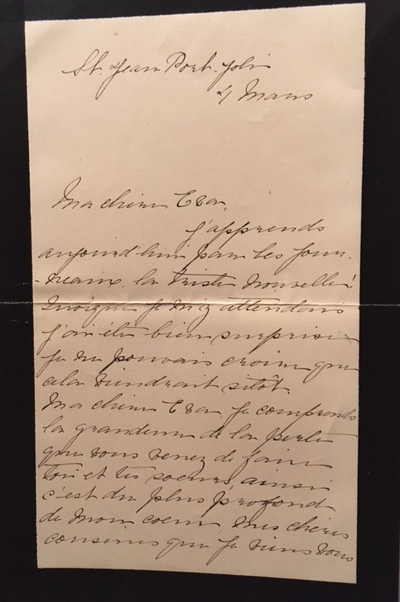 St. Jean Port-Joli
4 Mars
Ma chère Eva.
j'apprends
aujourd'hui par les jour-
-neaux la triste nouvelle!
quoique je m'y attendais
j'ai été bien surprise
je ne pouvais croire que
cela viendrait sitôt
Ma chère Eva je comprends
la grandeur de la perte
que vous venez de faire
toi et tes soeurs, aussi
c'est du plus profond
de mon coeur mes chères
cousines que je viens vous